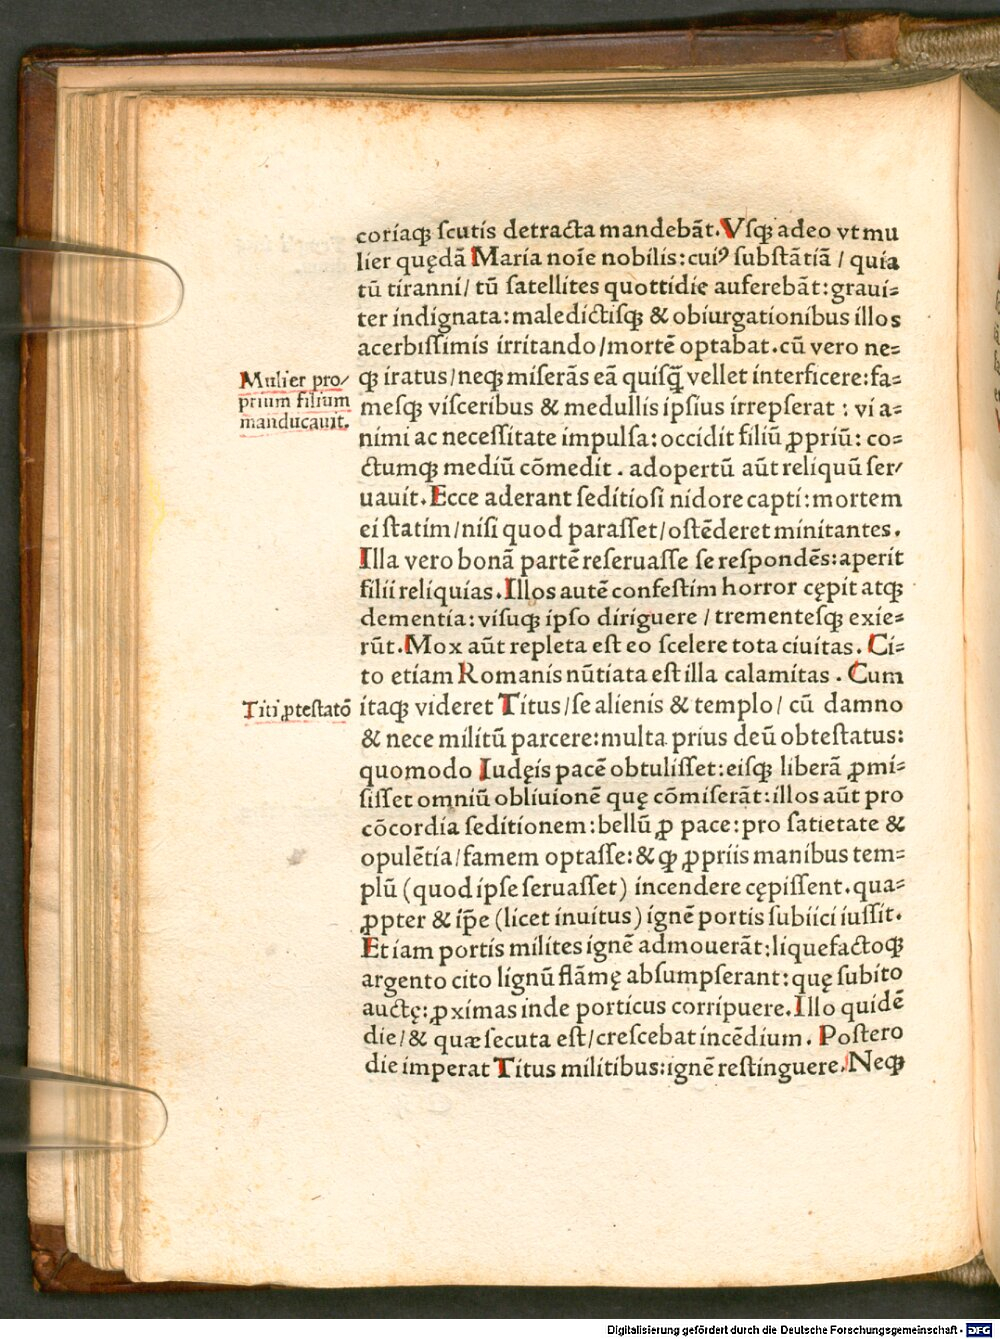 coriaqꝫ ſcutis detracta mandebãt. Vſqꝫ adeo vt mu
lier quędã Maria noĩe nobilis: cuiꝰ ſubſtãtiã / quia
tũ tiranni / tũ ſatellites quottidie auferebãt: graui⸗
ter indignata: maledictiſqꝫ & obiurgationibus illos
acerbiſſimis irritando / mortẽ optabat. cũ vero ne⸗
Mulier pro/
prium filium
manducauit.
qꝫ iratus / neqꝫ miſerãs eã quiſq̃ vellet interficere: fa⸗
meſqꝫ viſceribus & medullis ipſius irrepſerat : vi a⸗
nimi ac neceſſitate impulſa: occidit filiũ ꝓpriũ: co⸗
ctumqꝫ mediũ cõmedit . adopertũ aũt reliquũ ſer/
uauit. Ecce aderant ſeditioſi nidore capti: mortem
ei ſtatim / niſi quod paraſſet / oſtẽderet minitantes.
Illa vero bonã partẽ reſeruaſſe ſe reſpondẽs: aperit
filii reliquias. Illos autẽ confeſtim horror cępit atqꝫ
dementia: viſuqꝫ ipſo diriguere / trementeſqꝫ exie⸗
rũt. Mox aũt repleta eſt eo ſcelere tota ciuitas. Ci⸗
to etiam Romanis nũtiata eſt illa calamitas . Cum
Titi ꝓteſtatõ
itaqꝫ videret Titus / ſe alienis & templo / cũ damno
& nece militũ parcere: multa prius deũ obteſtatus:
quomodo Iudęis pacẽ obtuliſſet: eiſqꝫ liberã ꝓmi⸗
ſiſſet omniũ obliuionẽ quę cõmiſerãt: illos aũt pro
cõcordia ſeditionem: bellũ ꝓ pace: pro ſatietate &
opulẽtia / famem optaſſe: & ꝙ ꝓpriis manibus tem⸗
plũ (quod ipſe ſeruaſſet) incendere cępiſſent. qua⸗
ꝓpter & ip̃e (licet inuitus) ignẽ portis ſubiici iuſſit.
Et iam portis milites ignẽ admouerãt: liquefactoqꝫ
argento cito lignũ flãmę abſumpſerant: quę ſubito
auctę: ꝓximas inde porticus corripuere. Illo quidẽ
die / & quæ ſecuta eſt / creſcebat incẽdium. Poſtero
die imperat Titus militibus: ignẽ reſtinguere. Neqꝫ
Digitalisierung gefördert durch die Deutsche Forschungsgemeinschaft - DFG